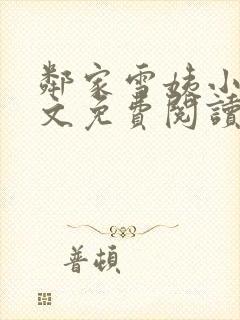 鄰家雪姨小
文免費閱讀
普頓